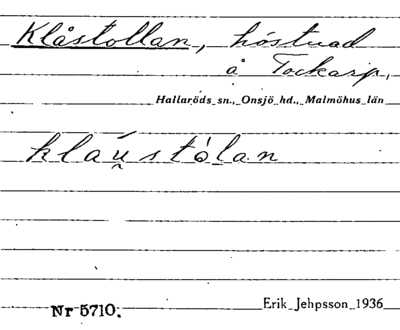 Klåstollan, höstuad
å Tockarp,
Hallaröds sn., Onsjö hd., Malmöhus län
kláu̯stòlan
Nr 5710.
Erik Jehpsson 1936